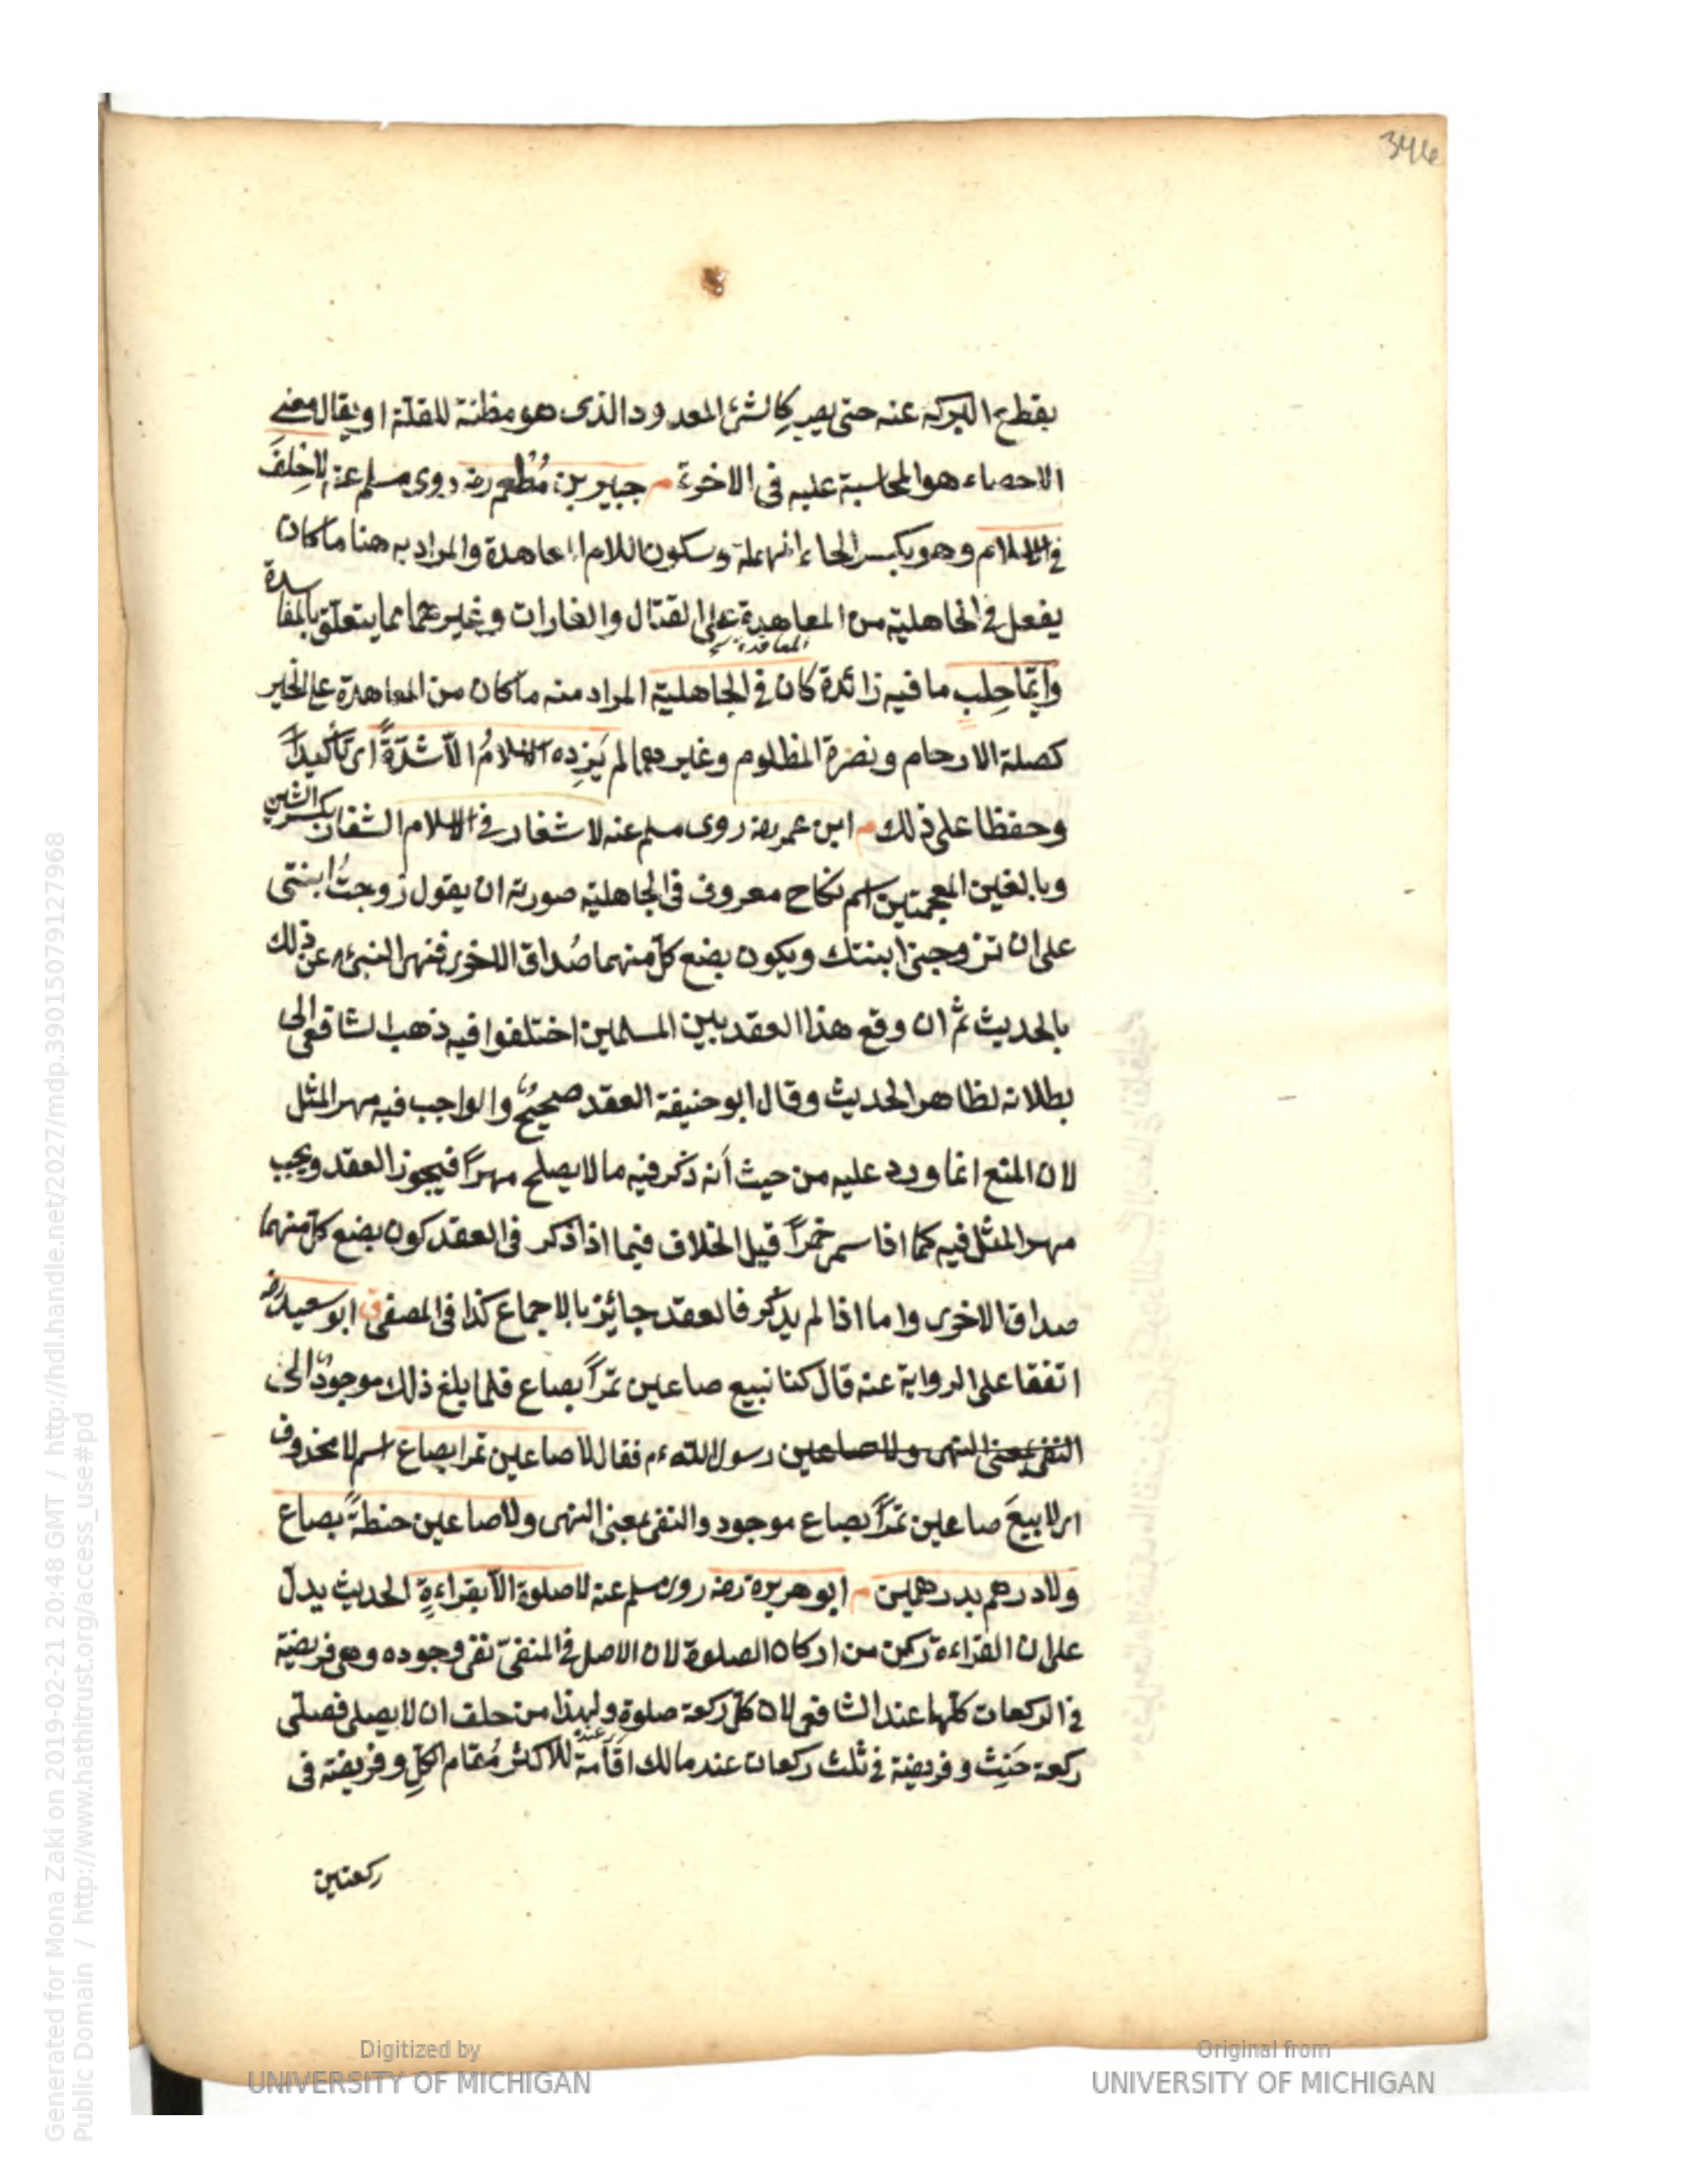 346
يقطع البركه عنه حتى يصير كالشئ المعدود الذى هو مظنة للقلة او يقال معنى
الاحصاء هو المحاسبة عليه فى الاخرة م جبير بن مُطعم رضه روى مسلم عنه لاحِلفَ
فى الاسلام وهو بكسر الحاء المهملة وسكون اللام المعاهدة والمراد به هنا ما كان
يفعل فى الجاهلية من المعاهدة على القتال والغارات وغيرهما مما يتعلق بالمفاسدة
المعاقدة
وايّما حِلب ما فيه زائدة كان فى الجاهلية المراد منه ما كان من المعاهدة على الخير
كصلة الارحام ونصرة المظلوم وغيرهما لم يَزِده الاسلامُ الّا شدّةً اى تأكيداً
وحفظا على ذلك م ابن عمر رضه روى مسلم عنه لا شغار فى الاسلام الشغار بكسر الشين
وبالغين المعجمتين اسم نكاح معروف فى الجاهلية صورته ان يقول زوجتُ ابنتى
على ان تزوجنى ابنتك ويكون بضع كل منهما صُداق الاخرى فنهى النبىء م عن ذلك
بالحديث ثم ان وقع هذا العقد بين المسلمين اختلفوا فيه ذهب الشافعى الى
بطلانه لظاهر الحديث وقال ابو حنيفة العقد صحيحٌ والواجب فيه مهر المثل
لان المنع انما ورد عليه من حيث أنه ذكر فيه ما لا يصلح مهراً فيجوز العقد ويجب
مهر المثل فيه كما اذا سمى خمراً قيل الخلاف فيما اذا ذكر فى العقد كون بضع كل منهما
صداق الاخرى واما اذا لم يذكر فالعقد جائز بالاجماع كذا فى المصفى ق ابو سعيد رضه
اتفقا على الرواية عنه قال كنا نبيع صاعين تمراً بصاع فلما بلغ ذلك موجودٌ الى
النفى بمعنى النهى ولا صاعين رسول الله ءم فقال لا صاعين تمرا بصاع اسم لا محذوف
اى لا بيعَ صاعين تمراً بصاع موجود والنفى بمعنى النهى ولا صاعين حنطةً بصاع
ولا درهم بدرهمين م ابو هريرة رضه روى مسلم عنه لا صلوة الّا بقراءةٍ الحديث يدلّ
على ان القراءة ركن من اركان الصلوة لان الاصل فى المنفىّ نفى وجوده وهى فريضة
فى الركعات كلها عند الشافعى لان كل ركعة صلوة ولهذا من حلف ان لا يصلى فصلّى
ركعة حَنِث وفريضة فى ثلث ركعات عند مالك اقامة للاكثر مُقام الكلِ وفريضته فى
ركعتين
Generated for Mona Zaki on 2019-02-21 20:48 GMT / http://hdl.handle.net/2027/mdp.39015079127968
Public Domain / http://www.hathitrust.org/access_use#pd
Digitized by
UNIVERSITY OF MICHIGAN
Original from
UNIVERSITY OF MICHIGAN